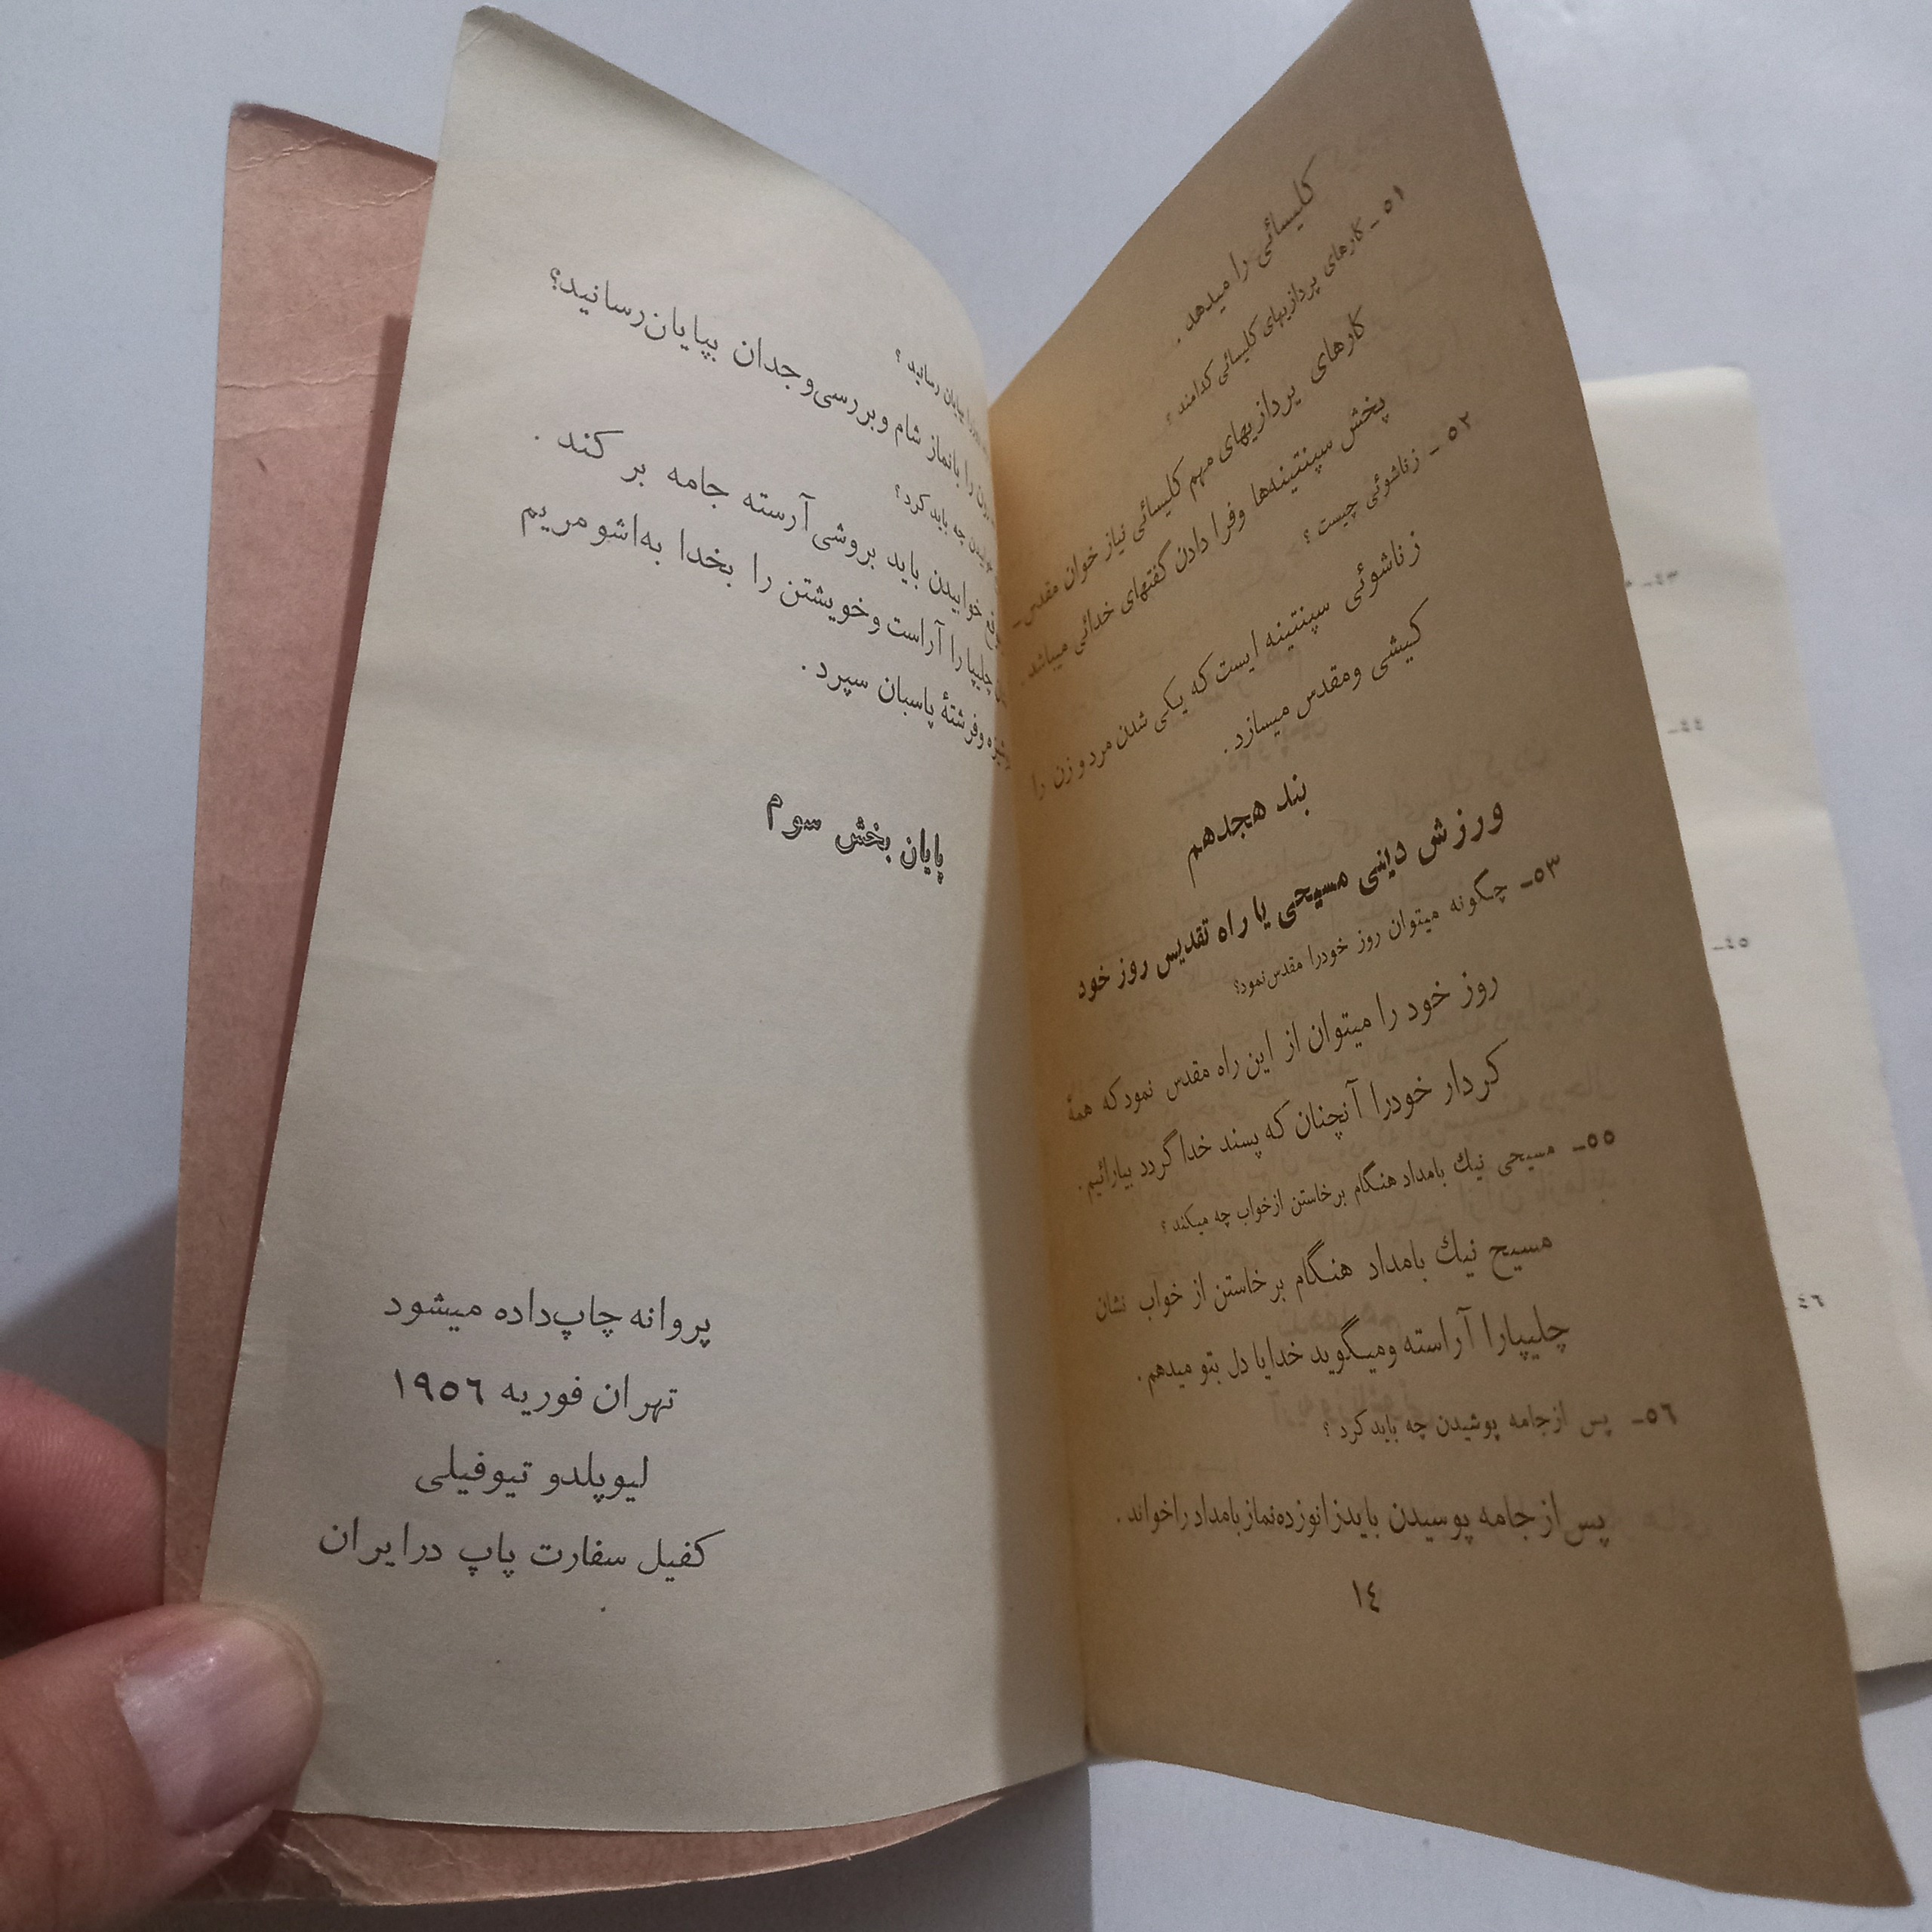 کلیسائی را میدهد.
۵۱ - کارهای پردازیهای کلیسائی کدامند ؟
کارهای پردازیهای مهم کلیسائی نیاز خوان مقدس-
پخش سپنتینه‌ها وفرا دادن گفتهای خدائی میباشد.
۵۲ - زناشوئی چیست ؟
زناشوئی سپنتینه ایست که یکی شدن مرد و زن را
کیشی ومقدس میسازد.
بند هجدهم
ورزش دینی مسیحی یا راه تقدیس روز خود
۵۳- چگونه میتوان روز خودرا مقدس نمود؟
روز خود را میتوان از این راه مقدس نمود که همهٔ
کردار خودرا آنچنان که پسند خدا گردد بیارائیم.
۵۵- مسیحی نیك بامداد هنگام برخاستن ازخواب چه میکند ؟
مسیح نیك بامداد هنگام برخاستن از خواب نشان
چلیپارا آراسته ومیگوید خدایا دل بتو میدهم.
۵٦- پس ازجامه پوشیدن چه باید کرد ؟
پس از جامه پوسیدن بایدزانوزده‌نمازبامداد راخواند.
۱٤
بپایان رسانید ؟
را بانماز شام وبررسی‌وجدان بپایان‌رسانید؟
چه باید کرد؟
خوابیدن باید بروشی‌آرسته جامه بر کند .
چلیپا را آراست وخویشتن را بخدا به‌اشو مریم
وفرشتهٔ پاسبان سپرد .
پایان بخش سوم
پروانه چاپ‌داده میشود
تهران فوریه ۱۹۵٦
لیوپلدو تیوفیلی
کفیل سفارت پاپ درایران
٤۳-
٤٤-
٤۵-
٤٦